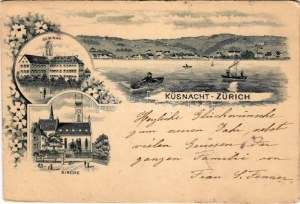 SEMINAR
KÜSNACHT-ZÜRICH
KIRCHE
Herzliche Glückwünsche
zum neuen Jahr nebst
vielen Grüssen Der
ganzen Familie von
Frau